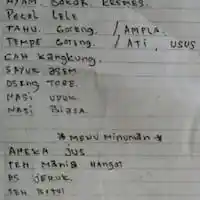 AYAM. BAKAR. KREMES.
Pecel Lele
TAHU. Goreng. / AMPLA.
TEMPE Goreng. / ATi, USUS
CAH Kangkung.
SAYUR ASEM
OSENG TOGE.
NASI UDUK
NASI BIASA.
* MENU MINUMAN *
ANEKA JUS
TEH MANIS HANGAT
ES JERUK
TEH BOTOL